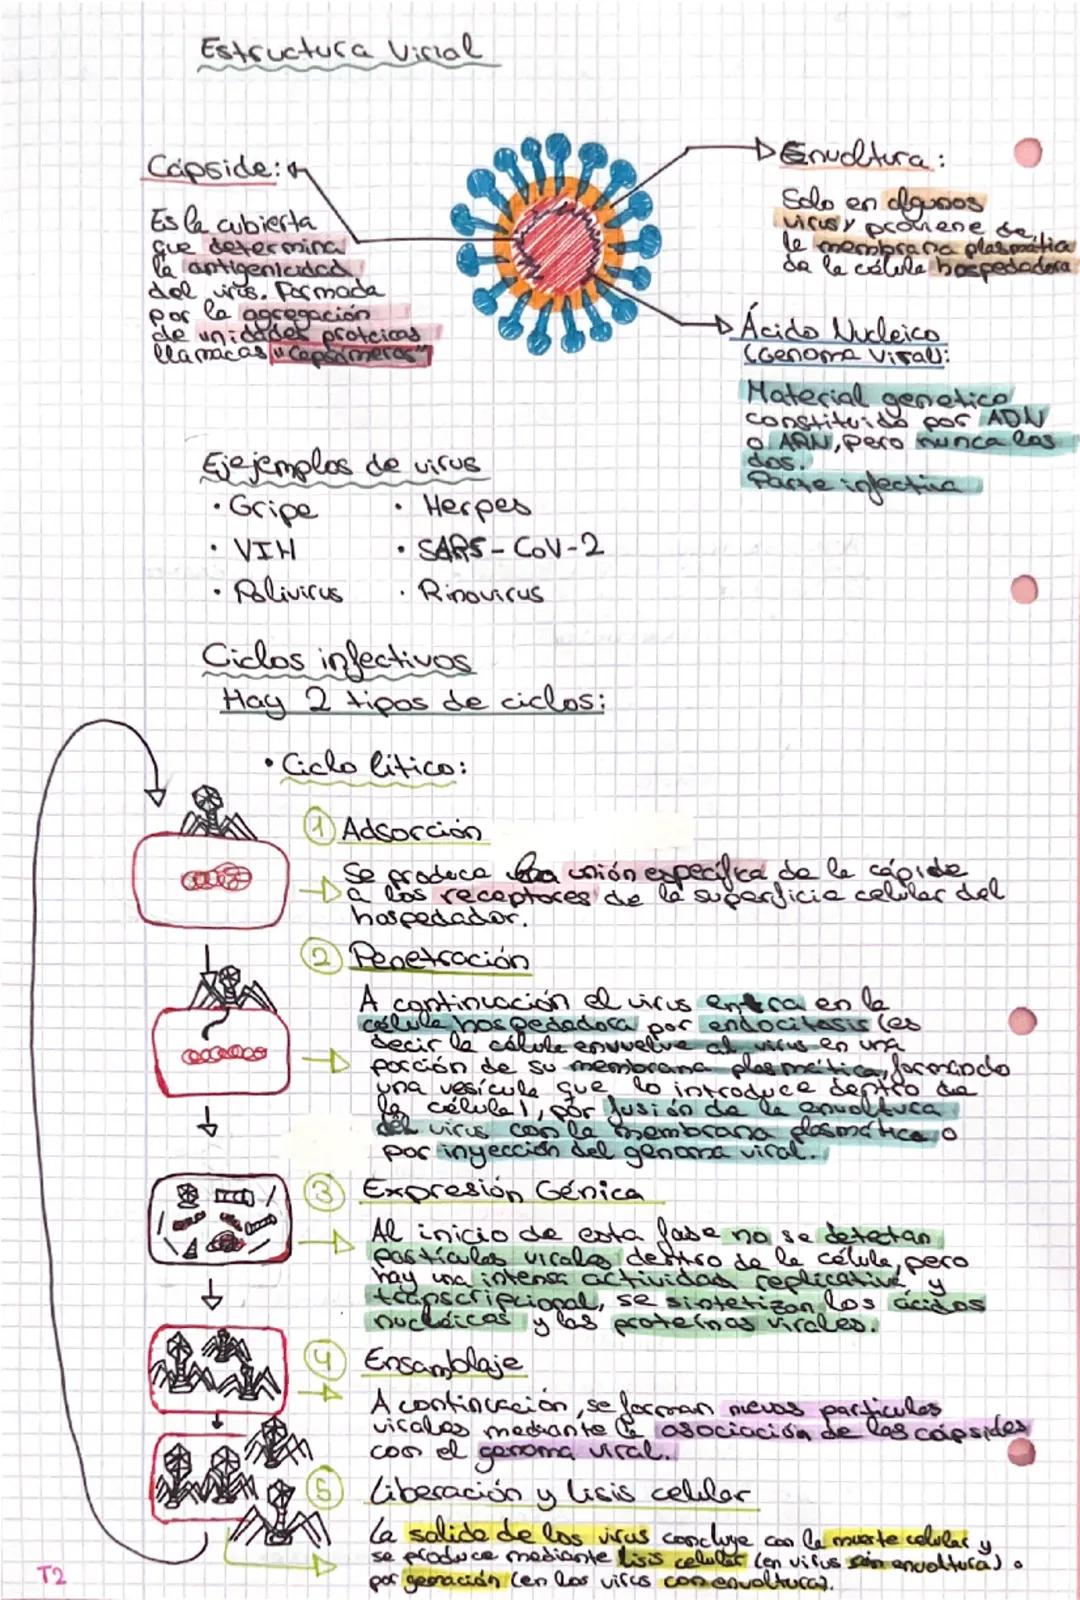 Estructura Viral
Cápside:
Es la cubierta
que determina
la antigenicidad
del virus. Formada
por la agregación
de unidades proteicas
llamadas "Capsómeros"
Envoltura:
Solo en algunos
virus y proviene de
la membrana plasmática
de la célula hospedadora
Ácido Nucleico
(Genoma Viral):
Material genetico
constituido por ADN
o ARN, pero nunca los
dos.
Parte infectiva
Ejejemplos de virus
· Gripe
· Herpes
· VIH
· SARS-CoV-2
· Polivirus
· Rinovirus
Ciclos infectivos
Hay 2 tipos de ciclos:
· Ciclo lítico:
1 Adsorción
Se produce una unión específica de la cápide
a los receptores de la superficie celular del
hospedador.
2 Penetración
A continuación el virus entra en la
célula hospedadora por endocitosis (es
decir la célula envuelve al virus en una
porción de su membrana plasmática, formando
una vesícula que lo introduce dentro de
la célula), por fusión de la envoltura
del virus con la membrana plasmática o
por inyección del genoma viral.
3 Expresión Génica
Al inicio de esta fase no se detectan
partículas virales dentro de la célula, pero
hay una intensa actividad replicativa y
transcripcional, se sintetizan los ácidos
nucléicos y las proteínas virales.
4 Ensamblaje
A continuación, se forman nuevas partículas
virales mediante la asociación de las cápsides
con el genoma viral.
5 Liberación y lisis celular
La salida de los virus concluye con la muerte celular y
se produce mediante lisis celular (en virus sin envoltura) o
por gemación (en los virus con envoltura).
T2